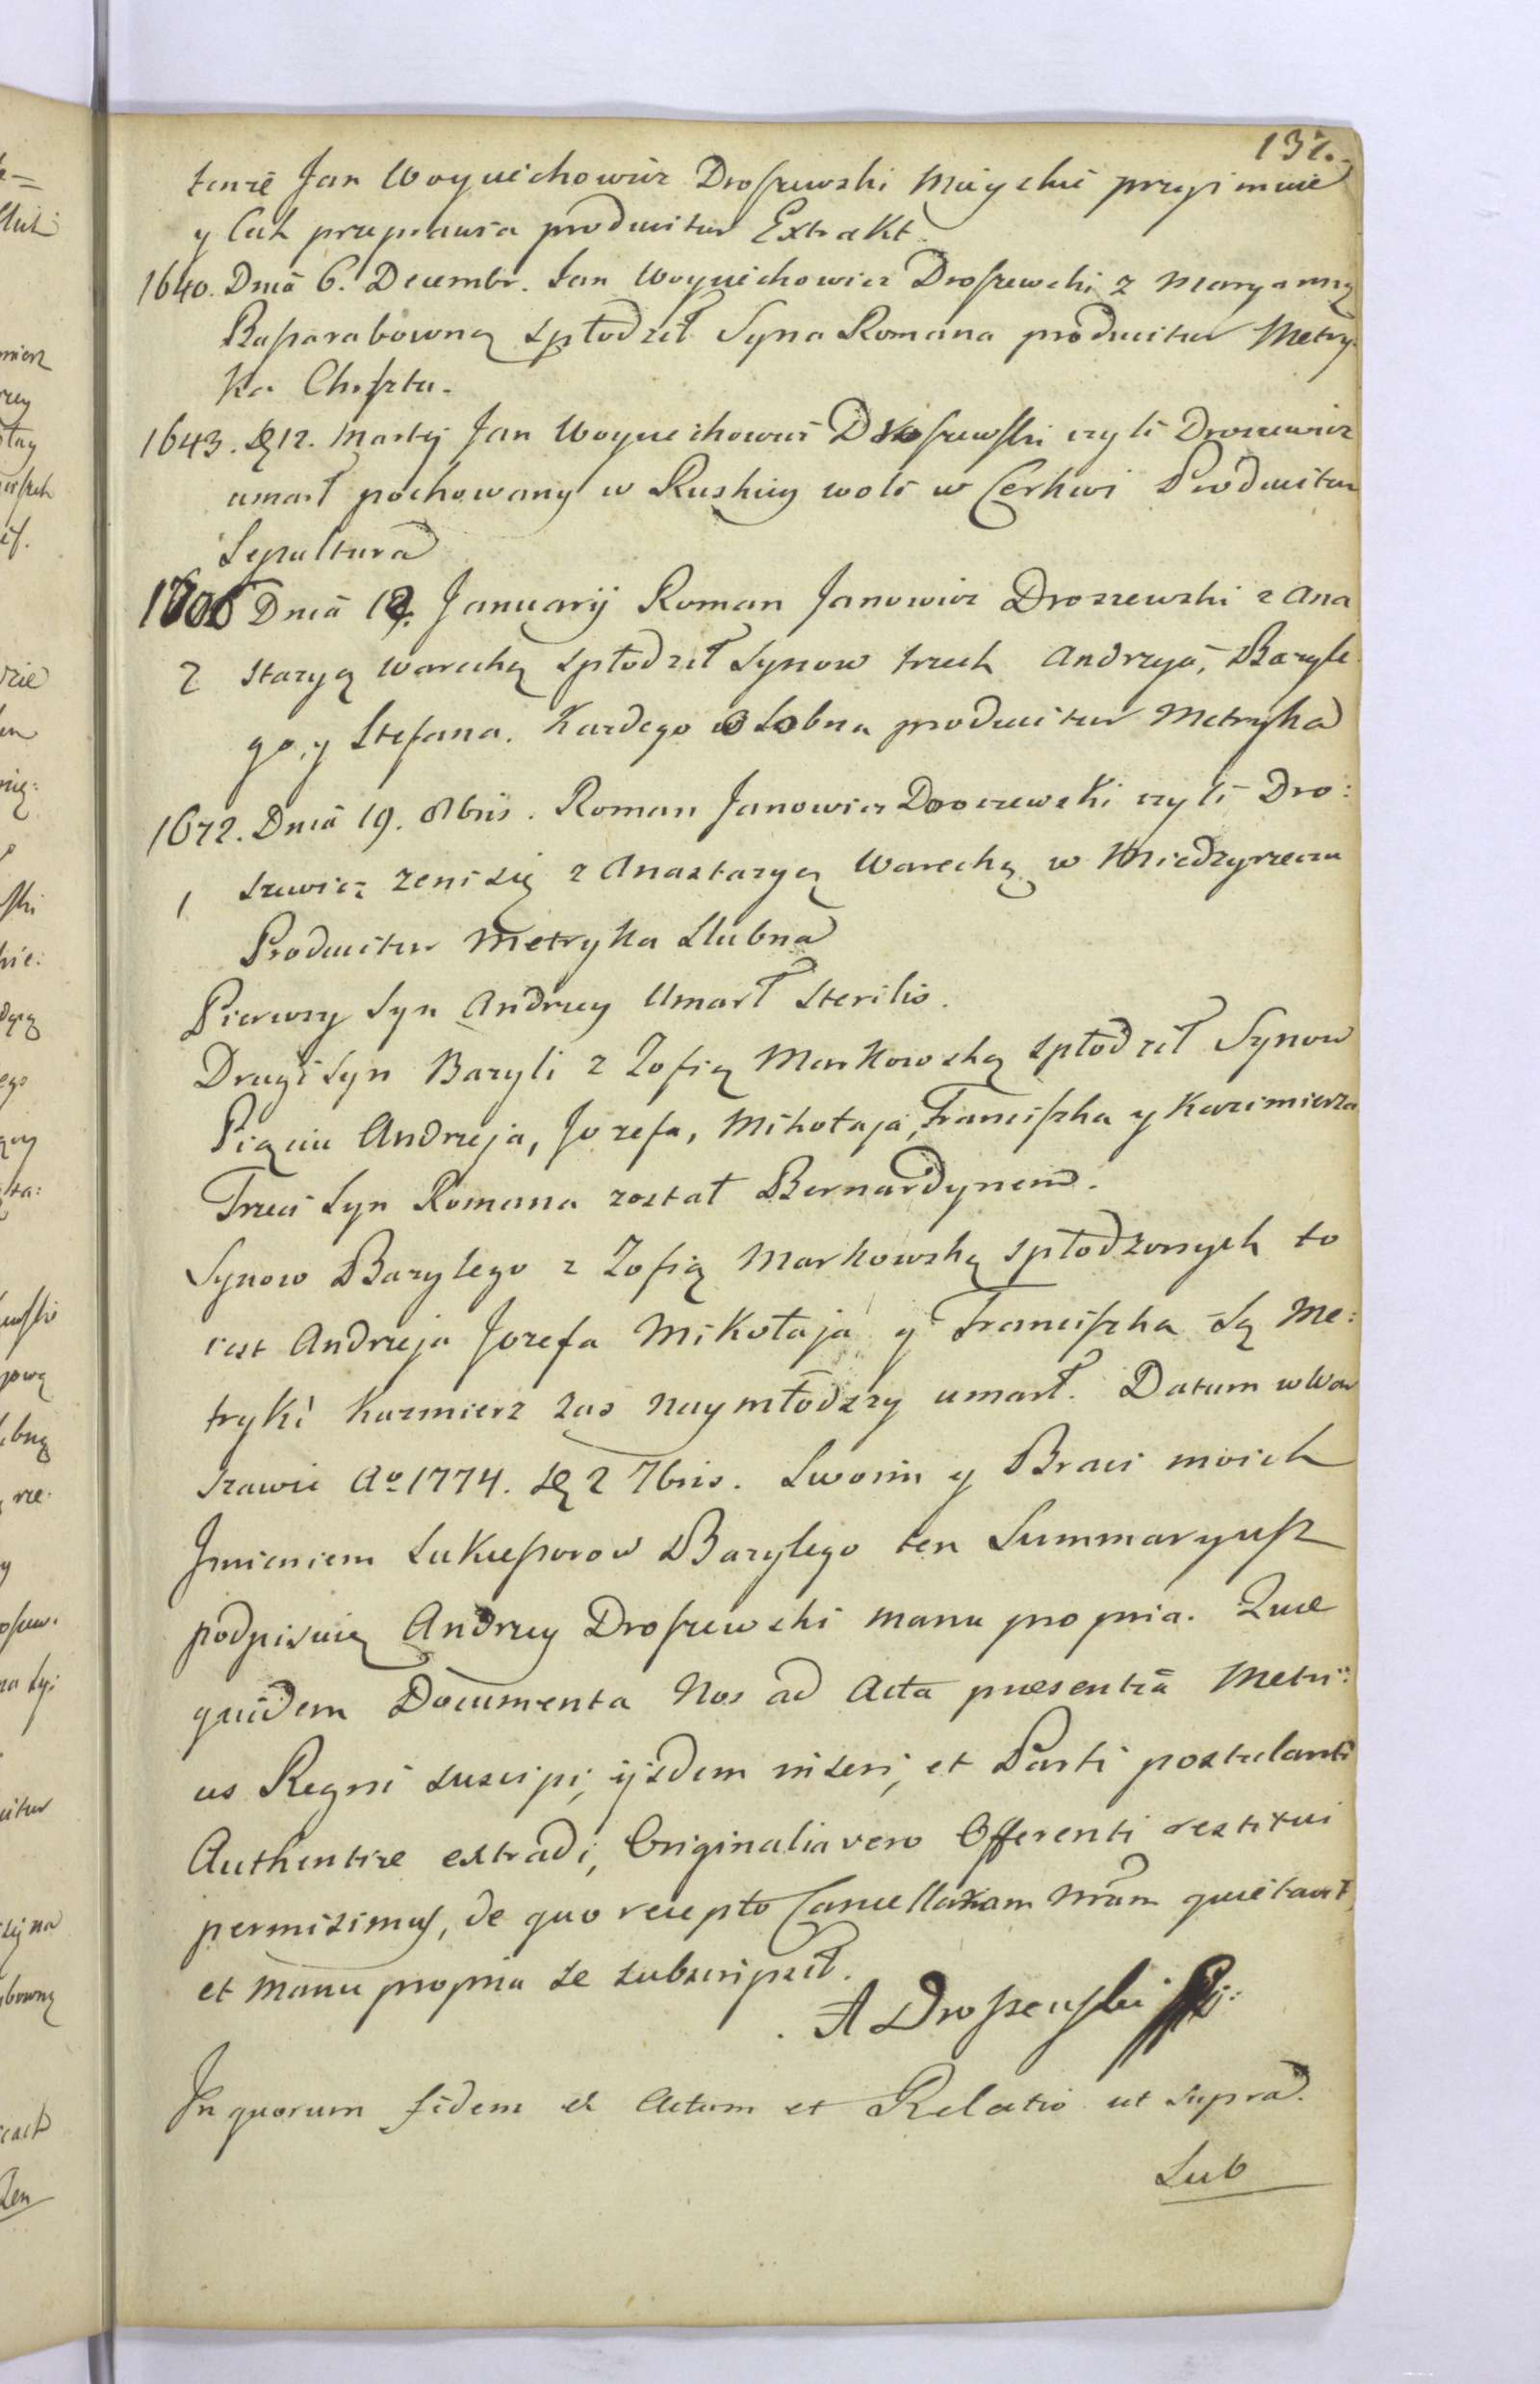 137.
tenże Jan Woyciechowicz Droszewski Mieyskie przyimuie
y Cech przeprasza producitur Extrakt
1640. Dniā 6. Decembr. Jan Woyciechowicz Droszewski z Maryanną
Baszarabowną spłodził Syna Romana producitur Metry
ka Chrsztu.
1643. D 12. Martij Jan Woyciechowicz Droszewski czyli Droszewicz
umarł pochowany w Ruskiey woli w Cerkwi Producitur
Sepultura
Dniā Januarij Roman Janowicz Droszewski z Ana
2 stazyą Warechą spłodził Synow trzech Andrzyā, Bazyle
go, y Stefana. Każdego osobna producitur Metryka
1672. Dniā 19. 8bris. Roman Janowicz Droszewski czyli Dro:
1 szewicz żeni się z Anastazyą Warechą w Miedzyrzeczu
Producitur Metryka Slubna
Pierwszy Syn Andrzey Umarł Sterilis.
Drugi Syn Bazyli z Zofią Markowską spłodził Synow
Pięciu Andrzeja, Jozefa, Mikołaja, Franciszka y Kazimierza
Trzeci Syn Romana został Bernardynem.
Synow Bazylego z Zofią Markowską spłodzonych to
iest Andrzeja Jozefa Mikołaja y Franciszka są Me:
tryki Kazmierz zas naymłodszy umarł. Datum w War
szawie Aº 1774. D 2 7bris. Swoim y Braci moich
Jmieniem Sukceszorow Bazylego ten Summaryusz
podpisuię Andrzey Droszewski manu propria. Quæ
quidem Documenta Nos ad Acta præsentiā Metri:
ces Regni suscipi, ijsdem inseri, et Parti postulanti
Authentice extradi, Originalia vero Offerenti restitui
permisimus, de quo recepto Cancellariam Nrām quietavit
et manu propria se subscripsit.
A Droszewski
In quorum fidem et Actum et Relatio ut supra.
Sub